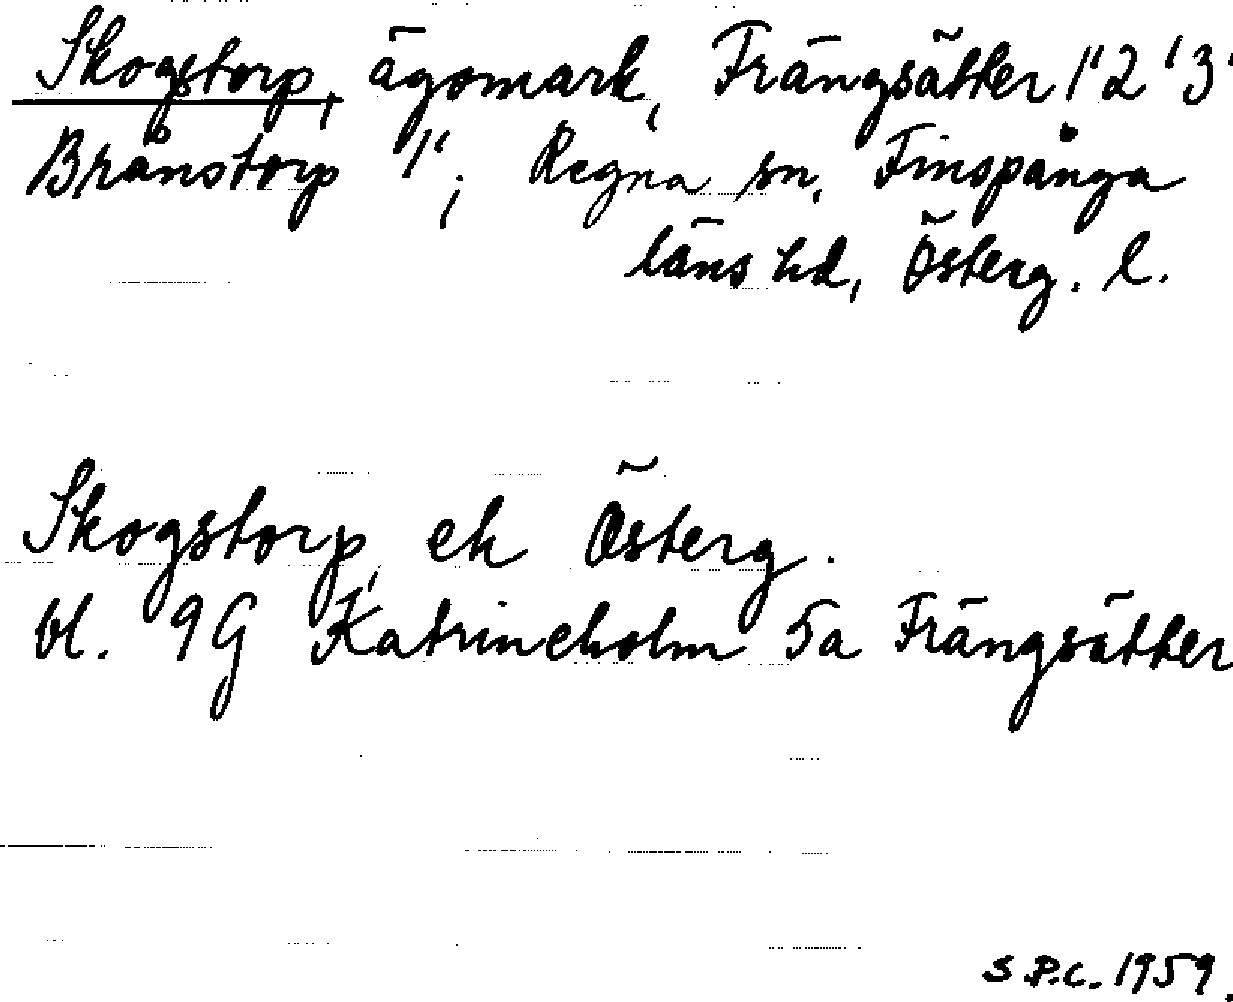 Skogstorp, ägomark, Frängsätter 1'2'3'
Brånstorp 1'; Regna sn. Finspånga
läns hd, Österg. l.
Skogstorp, ek Österg.
bl. 9G Katrineholm 5a Frängsätter
S.P.C. 1959.